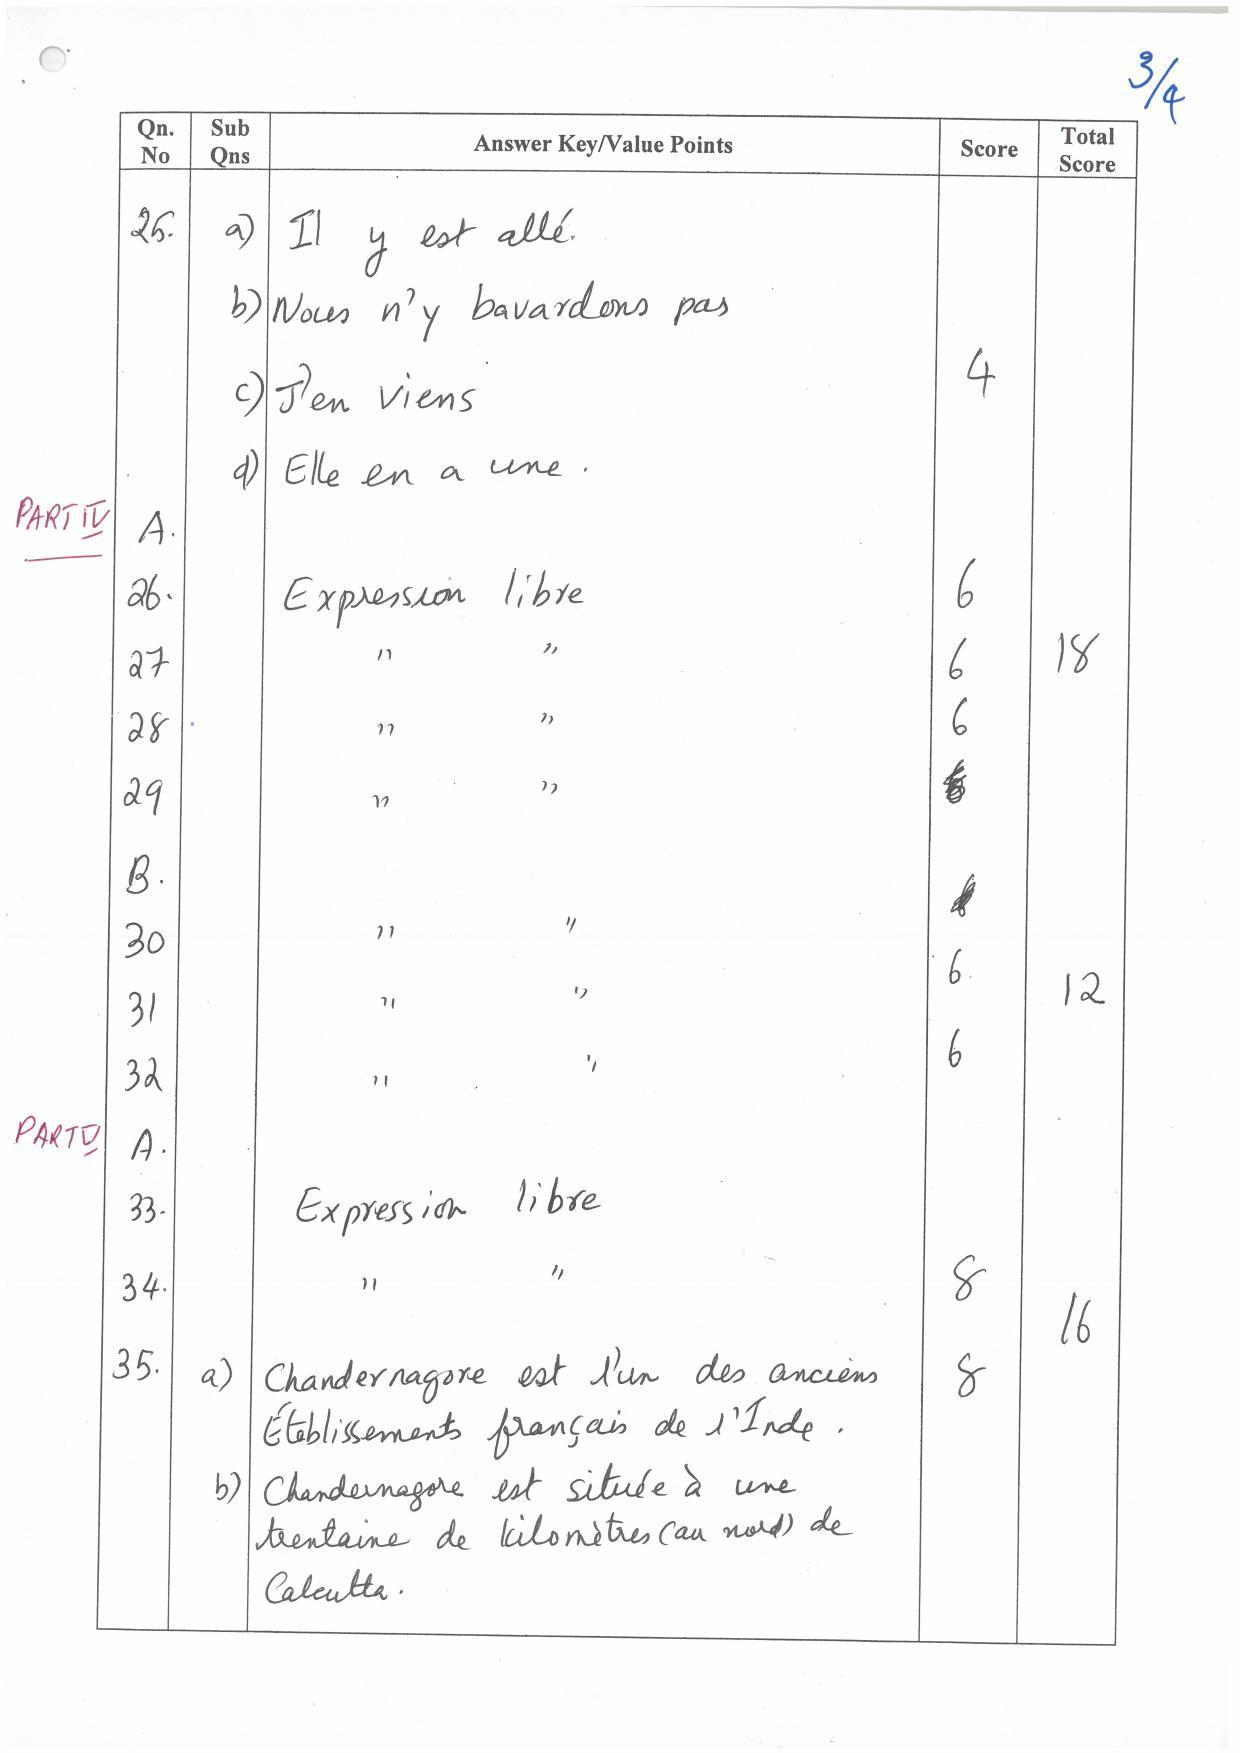 3/4
Qn. No Sub Qns Answer Key/Value Points Score Total Score
25. a) Il y est allé.
b) Nous n'y bavardons pas
c) J'en viens 4
d) Elle en a une.
PART IV A.
26. Expression libre 6
27 " " 6 18
28 " " 6
29 " "
B.
30 " "
31 " " 6 12
32 " " 6
PART V A.
33. Expression libre
34. " " 8 16
35. a) Chandernagore est l'un des anciens 8
Établissements français de l'Inde.
b) Chandernagore est située à une
trentaine de kilomètres (au nord) de
Calcutta.